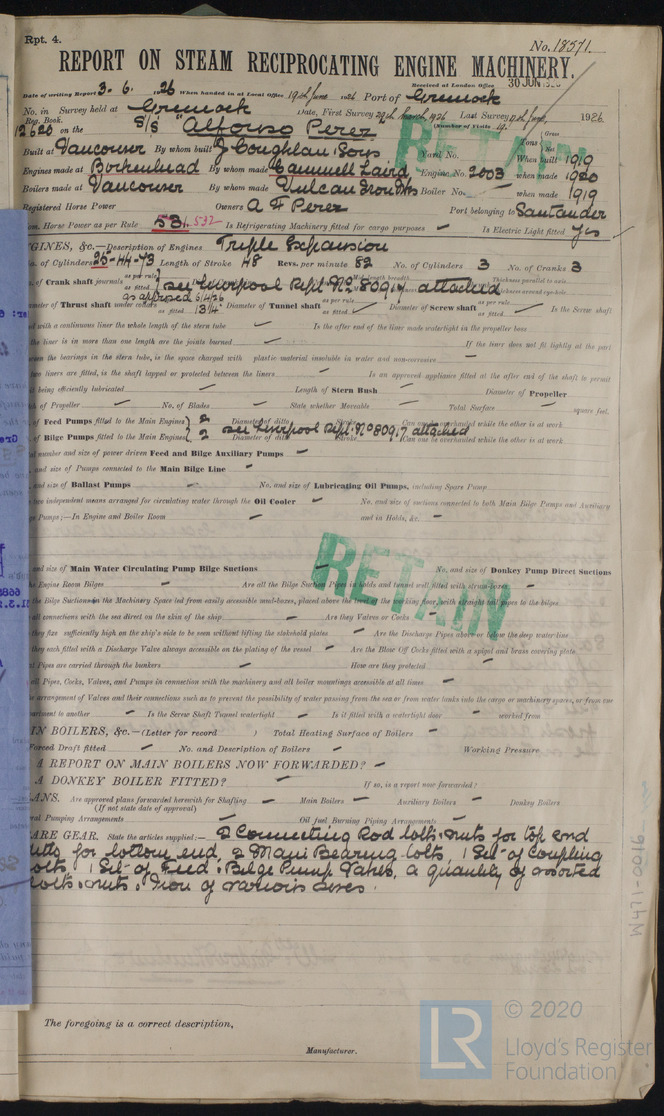 Rpt. 4.
No. 18571.
REPORT ON STEAM RECIPROCATING ENGINE MACHINERY.
Received at London Office 30 JUN 1926
Date of writing Report 3. 6. 1926 When handed in at Local Office 19th June 1926 Port of Greenock
No. in Survey held at Greenock Date, First Survey 29th March, 1926 Last Survey 9th June, 1926
Reg. Book. (Number of Visits 19.
12620 on the S/S "Alfonso Perez" Tons Gross
Built at Vancouver By whom built J Coughlan Sons Yard No. When built 1919
Engines made at Birkenhead By whom made Cammell Laird Engine No. 2003 when made 1920
Boilers made at Vancouver By whom made Vulcan Iron Wks Boiler No. when made 1919
Registered Horse Power Owners A F Perez Port belonging to Santander
Nom. Horse Power as per Rule 531. 532 Is Refrigerating Machinery fitted for cargo purposes - Is Electric Light fitted Yes
GINES, &c.—Description of Engines Triple Expansion
o. of Cylinders 25-44-73 Length of Stroke 48 Revs. per minute 82 No. of Cylinders 3 No. of Cranks 3
of Crank shaft journals as per rule as fitted } see Liverpool Rept. No. 80917 attached
as approved 6/4/26
meter of Thrust shaft under collars as fitted 13¼" Diameter of Tunnel shaft as per rule as fitted Diameter of Screw shaft as per rule as fitted Is the Screw shaft
d with a continuous liner the whole length of the stern tube - Is the after end of the liner made watertight in the propeller boss
the liner is in more than one length are the joints burned - If the liner does not fit tightly at the part
een the bearings in the stern tube, is the space charged with plastic material insoluble in water and non-corrosive -
two liners are fitted, is the shaft lapped or protected between the liners - Is an approved appliance fitted at the after end of the shaft to permit
it being efficiently lubricated - Length of Stern Bush - Diameter of Propeller
h of Propeller - No. of Blades - State whether Moveable - Total Surface - square feet.
of Feed Pumps fitted to the Main Engines } 2 Diameter of ditto Stroke Can one be overhauled while the other is at work
see Liverpool Rept. No 80917 attached
of Bilge Pumps fitted to the Main Engines } 2 Diameter of ditto Stroke Can one be overhauled while the other is at work
al number and size of power driven Feed and Bilge Auxiliary Pumps -
and size of Pumps connected to the Main Bilge Line -
and size of Ballast Pumps - No. and size of Lubricating Oil Pumps, including Spare Pump
two independent means arranged for circulating water through the Oil Cooler - No. and size of suctions connected to both Main Bilge Pumps and Auxiliary
ge Pumps;—In Engine and Boiler Room - and in Holds, &c. -
RETAIN
RETAIN
and size of Main Water Circulating Pump Bilge Suctions - No. and size of Donkey Pump Direct Suctions
he Engine Room Bilges - Are all the Bilge Suction Pipes in holds and tunnel well fitted with strum-boxes -
the Bilge Suctions in the Machinery Space led from easily accessible mud-boxes, placed above the level of the working floor, with straight tail pipes to the bilges
all connections with the sea direct on the skin of the ship - Are they Valves or Cocks -
they fixed sufficiently high on the ship's side to be seen without lifting the stokehold plates - Are the Discharge Pipes above or below the deep water line -
they each fitted with a Discharge Valve always accessible on the plating of the vessel - Are the Blow Off Cocks fitted with a spigot and brass covering plate
t Pipes are carried through the bunkers - How are they protected -
all Pipes, Cocks, Valves, and Pumps in connection with the machinery and all boiler mountings accessible at all times -
e arrangement of Valves and their connections such as to prevent the possibility of water passing from the sea or from water tanks into the cargo or machinery spaces, or from one
artment to another - Is the Screw Shaft Tunnel watertight - Is it fitted with a watertight door - worked from
IN BOILERS, &c.—(Letter for record ) Total Heating Surface of Boilers -
Forced Draft fitted - No. and Description of Boilers - Working Pressure
A REPORT ON MAIN BOILERS NOW FORWARDED? -
A DONKEY BOILER FITTED? - If so, is a report now forwarded?
ANS. Are approved plans forwarded herewith for Shafting - Main Boilers - Auxiliary Boilers - Donkey Boilers
(If not state date of approval)
ral Pumping Arrangements - Oil fuel Burning Piping Arrangements -
ARE GEAR. State the articles supplied:— 2 Connecting Rod bolts & nuts for top end
ditto for bottom end, 2 Main Bearing bolts, 1 Set of Coupling
bolts, 1 Set of Feed & Bilge Pump Valves, a quantity of assorted
bolts & nuts, Iron of various sizes.
W471-0016
The foregoing is a correct description,
Manufacturer.
LR
© 2020
Lloyd's Register
Foundation